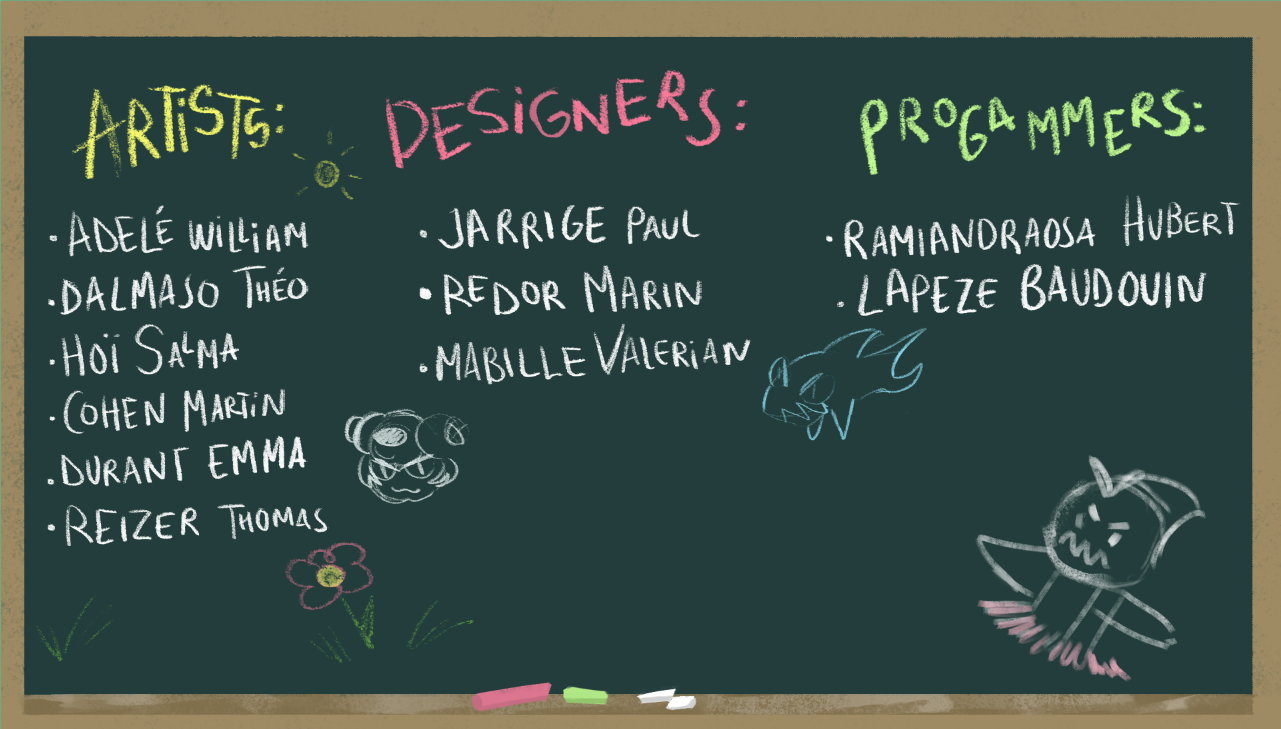 ARTISTS:
ADELÉ WILLIAM
DALMASO THÉO
HOÏ SALMA
COHEN MARTIN
DURANT EMMA
REIZER THOMAS
DESIGNERS:
JARRIGE PAUL
REDOR MARIN
MABILLE VALERIAN
PROGAMMERS:
RAMIANDRAOSA HUBERT
LAPEZE BAUDOUIN